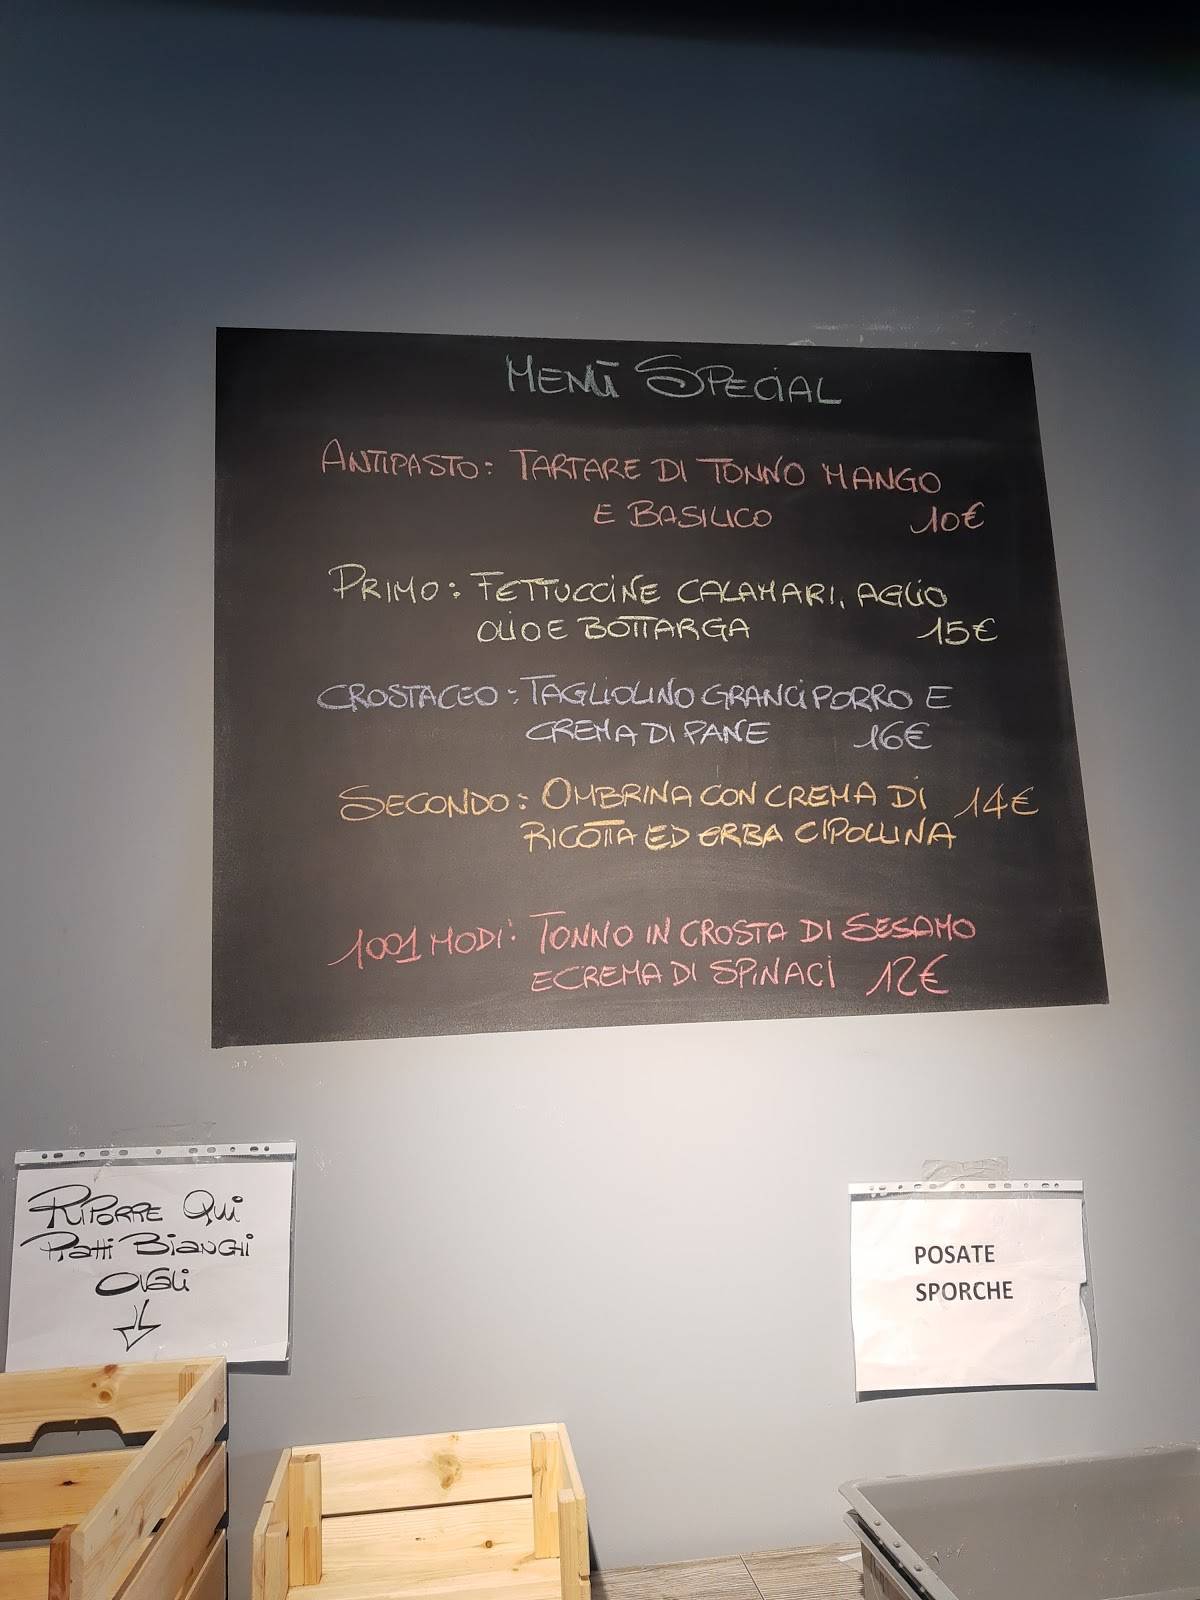 MENÙ SPECIAL
ANTIPASTO: TARTARE DI TONNO MANGO
E BASILICO 10€
PRIMO: FETTUCCINE CALAMARI, AGLIO
OLIO E BOTTARGA 15€
CROSTACEO: TAGLIOLINO GRANCIPORRO E
CREMA DI PANE 16€
SECONDO: OMBRINA CON CREMA DI 14€
RICOTTA ED ERBA CIPOLLINA
1001 MODI: TONNO IN CROSTA DI SESAMO
E CREMA DI SPINACI 12€
RIPORRE QUI
PIATTI BIANCHI
OVALI
POSATE
SPORCHE